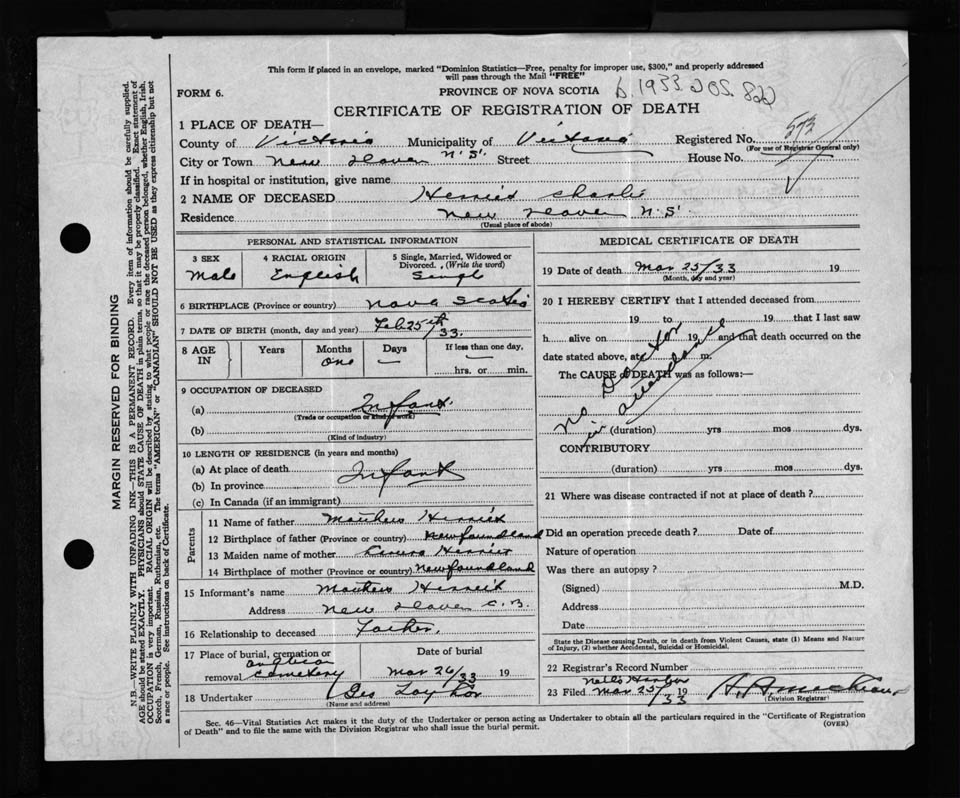 This form if placed in an envelope, marked "Dominion Statistics—Free, penalty for improper use, $300," and properly addressed
will pass through the Mail "FREE"
FORM 6.
PROVINCE OF NOVA SCOTIA b. 1933 205. 820
CERTIFICATE OF REGISTRATION OF DEATH
1 PLACE OF DEATH—
County of Victoria Municipality of Victoria Registered No. 573
(For use of Registrar General only)
City or Town New Haven N.S. Street House No.
If in hospital or institution, give name
2 NAME OF DECEASED Charlie
Residence New Haven N.S.
(Usual place of abode)
PERSONAL AND STATISTICAL INFORMATION
3 SEX 4 RACIAL ORIGIN 5 Single, Married, Widowed or
Divorced. (Write the word)
Male English Single
6 BIRTHPLACE (Province or country) Nova Scotia
7 DATE OF BIRTH (month, day and year) Feb 25th/33.
8 AGE IN Years Months Days If less than one day,
one — hrs. or min.
9 OCCUPATION OF DECEASED
(a) Infant.
(Trade or occupation or kind of work)
(b)
(Kind of industry)
10 LENGTH OF RESIDENCE (in years and months)
(a) At place of death
(b) In province Infant
(c) In Canada (if an immigrant)
Parents
11 Name of father
12 Birthplace of father (Province or country) Newfoundland
13 Maiden name of mother
14 Birthplace of mother (Province or country) Newfoundland
15 Informant's name
Address New Haven C.B.
16 Relationship to deceased Father.
17 Place of burial, cremation or Date of burial
removal cemetery Mar 26/33 19
18 Undertaker Geo Taylor
(Name and address)
MEDICAL CERTIFICATE OF DEATH
19 Date of death Mar 25/33 19
(Month, day and year)
20 I HEREBY CERTIFY that I attended deceased from
19 to 19 that I last saw
h alive on 19 and that death occurred on the
date stated above, at m.
The CAUSE of DEATH was as follows:—
No Doctor
in attendance
(duration) yrs mos dys.
CONTRIBUTORY
(duration) yrs mos dys.
21 Where was disease contracted if not at place of death?
Did an operation precede death? Date of
Nature of operation
Was there an autopsy?
(Signed) M.D.
Address
Date
State the Disease causing Death, or in death from Violent Causes, state (1) Means and Nature
of Injury, (2) whether Accidental, Suicidal or Homicidal.
22 Registrar's Record Number
Neils Harbor
23 Filed Mar 25/33 19
(Division Registrar)
Sec. 46—Vital Statistics Act makes it the duty of the Undertaker or person acting as Undertaker to obtain all the particulars required in the "Certificate of Registration
of Death" and to file the same with the Division Registrar who shall issue the burial permit.
(OVER)
MARGIN RESERVED FOR BINDING
N.B.—WRITE PLAINLY WITH UNFADING INK—THIS IS A PERMANENT RECORD. Every item of information should be carefully supplied.
AGE should be stated EXACTLY. PHYSICIANS should STATE CAUSE OF DEATH in plain terms, so that it may be properly classified. Exact statement of
OCCUPATION is very important. RACIAL ORIGIN will be described by stating to what people or race the deceased person belonged, whether English, Irish,
Scotch, French, German, Russian, Ruthenian, etc. The terms "AMERICAN" or "CANADIAN" SHOULD NOT BE USED as they express citizenship but not
a race or people. See instructions on back of Certificate.